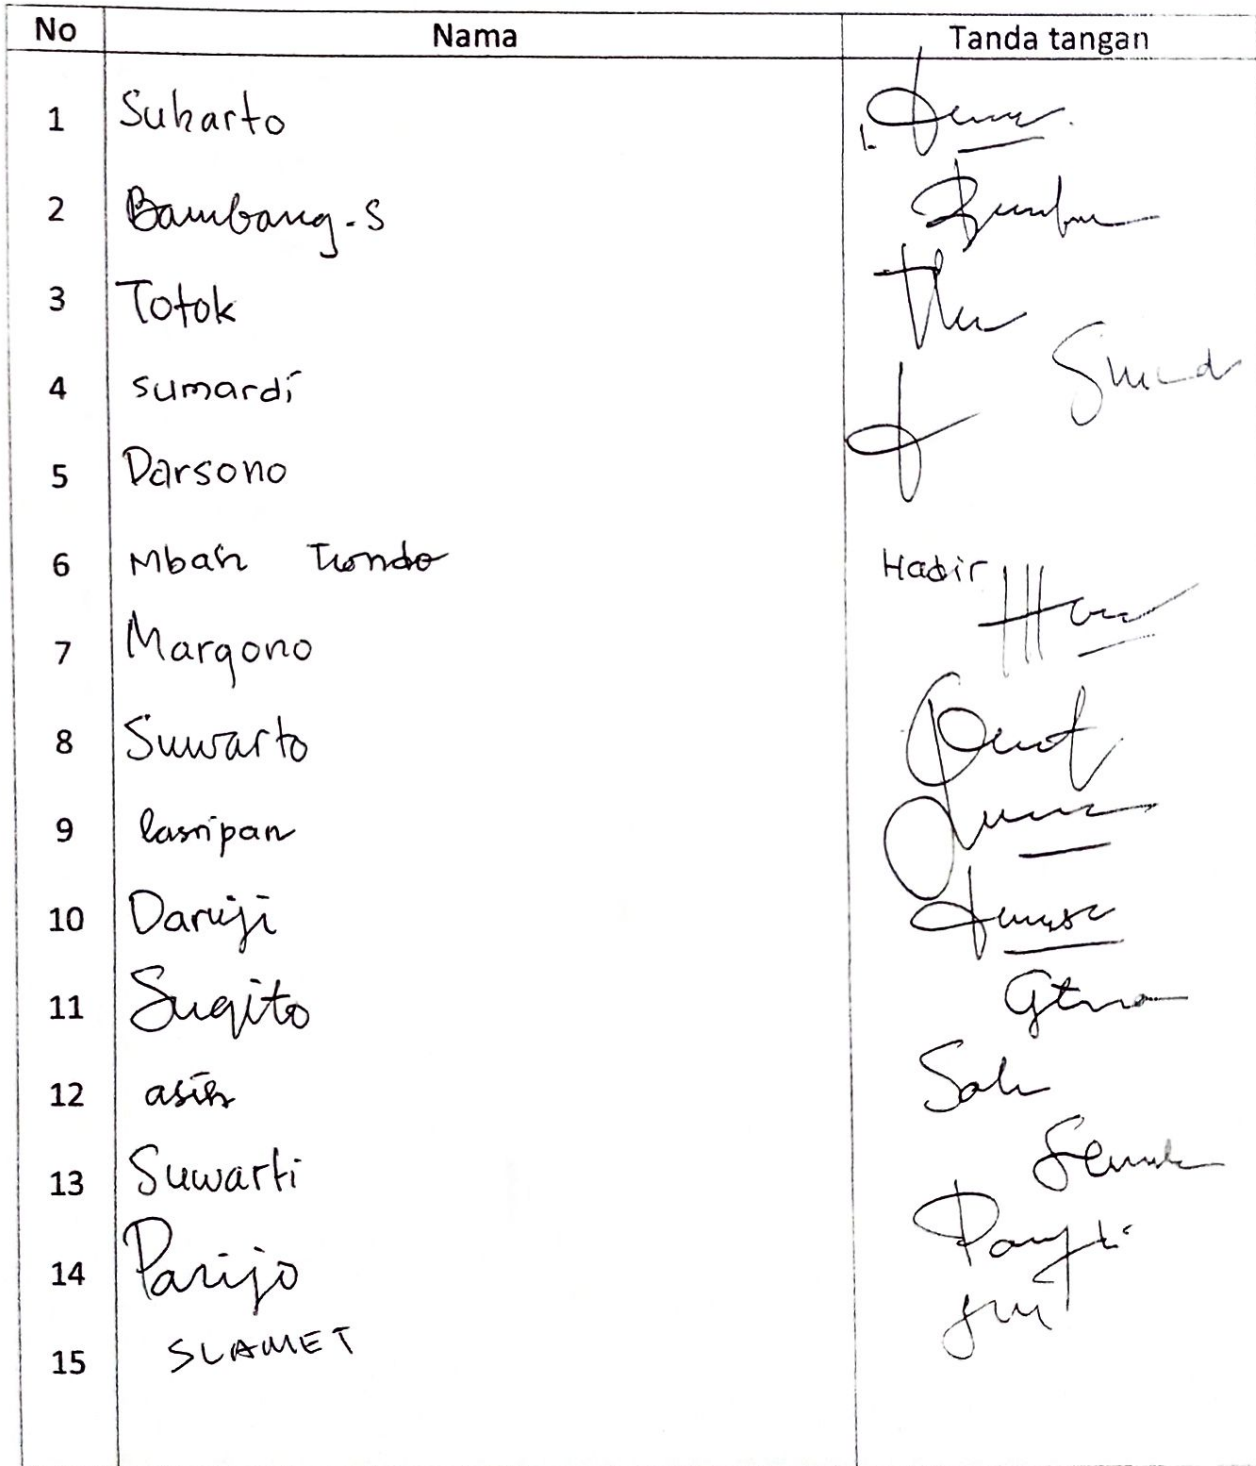 No Nama Tanda tangan
1 Sukarto
2 Bambang.S
3 Totok
4 sumardi
5 Darsono
6 Mbah Hadir
7 Margono
8 Suwarto
9 lasripan
10 Daruji
11 Sugito
12 asih
13 Suwarti
14 Parijo
15 SLAMET